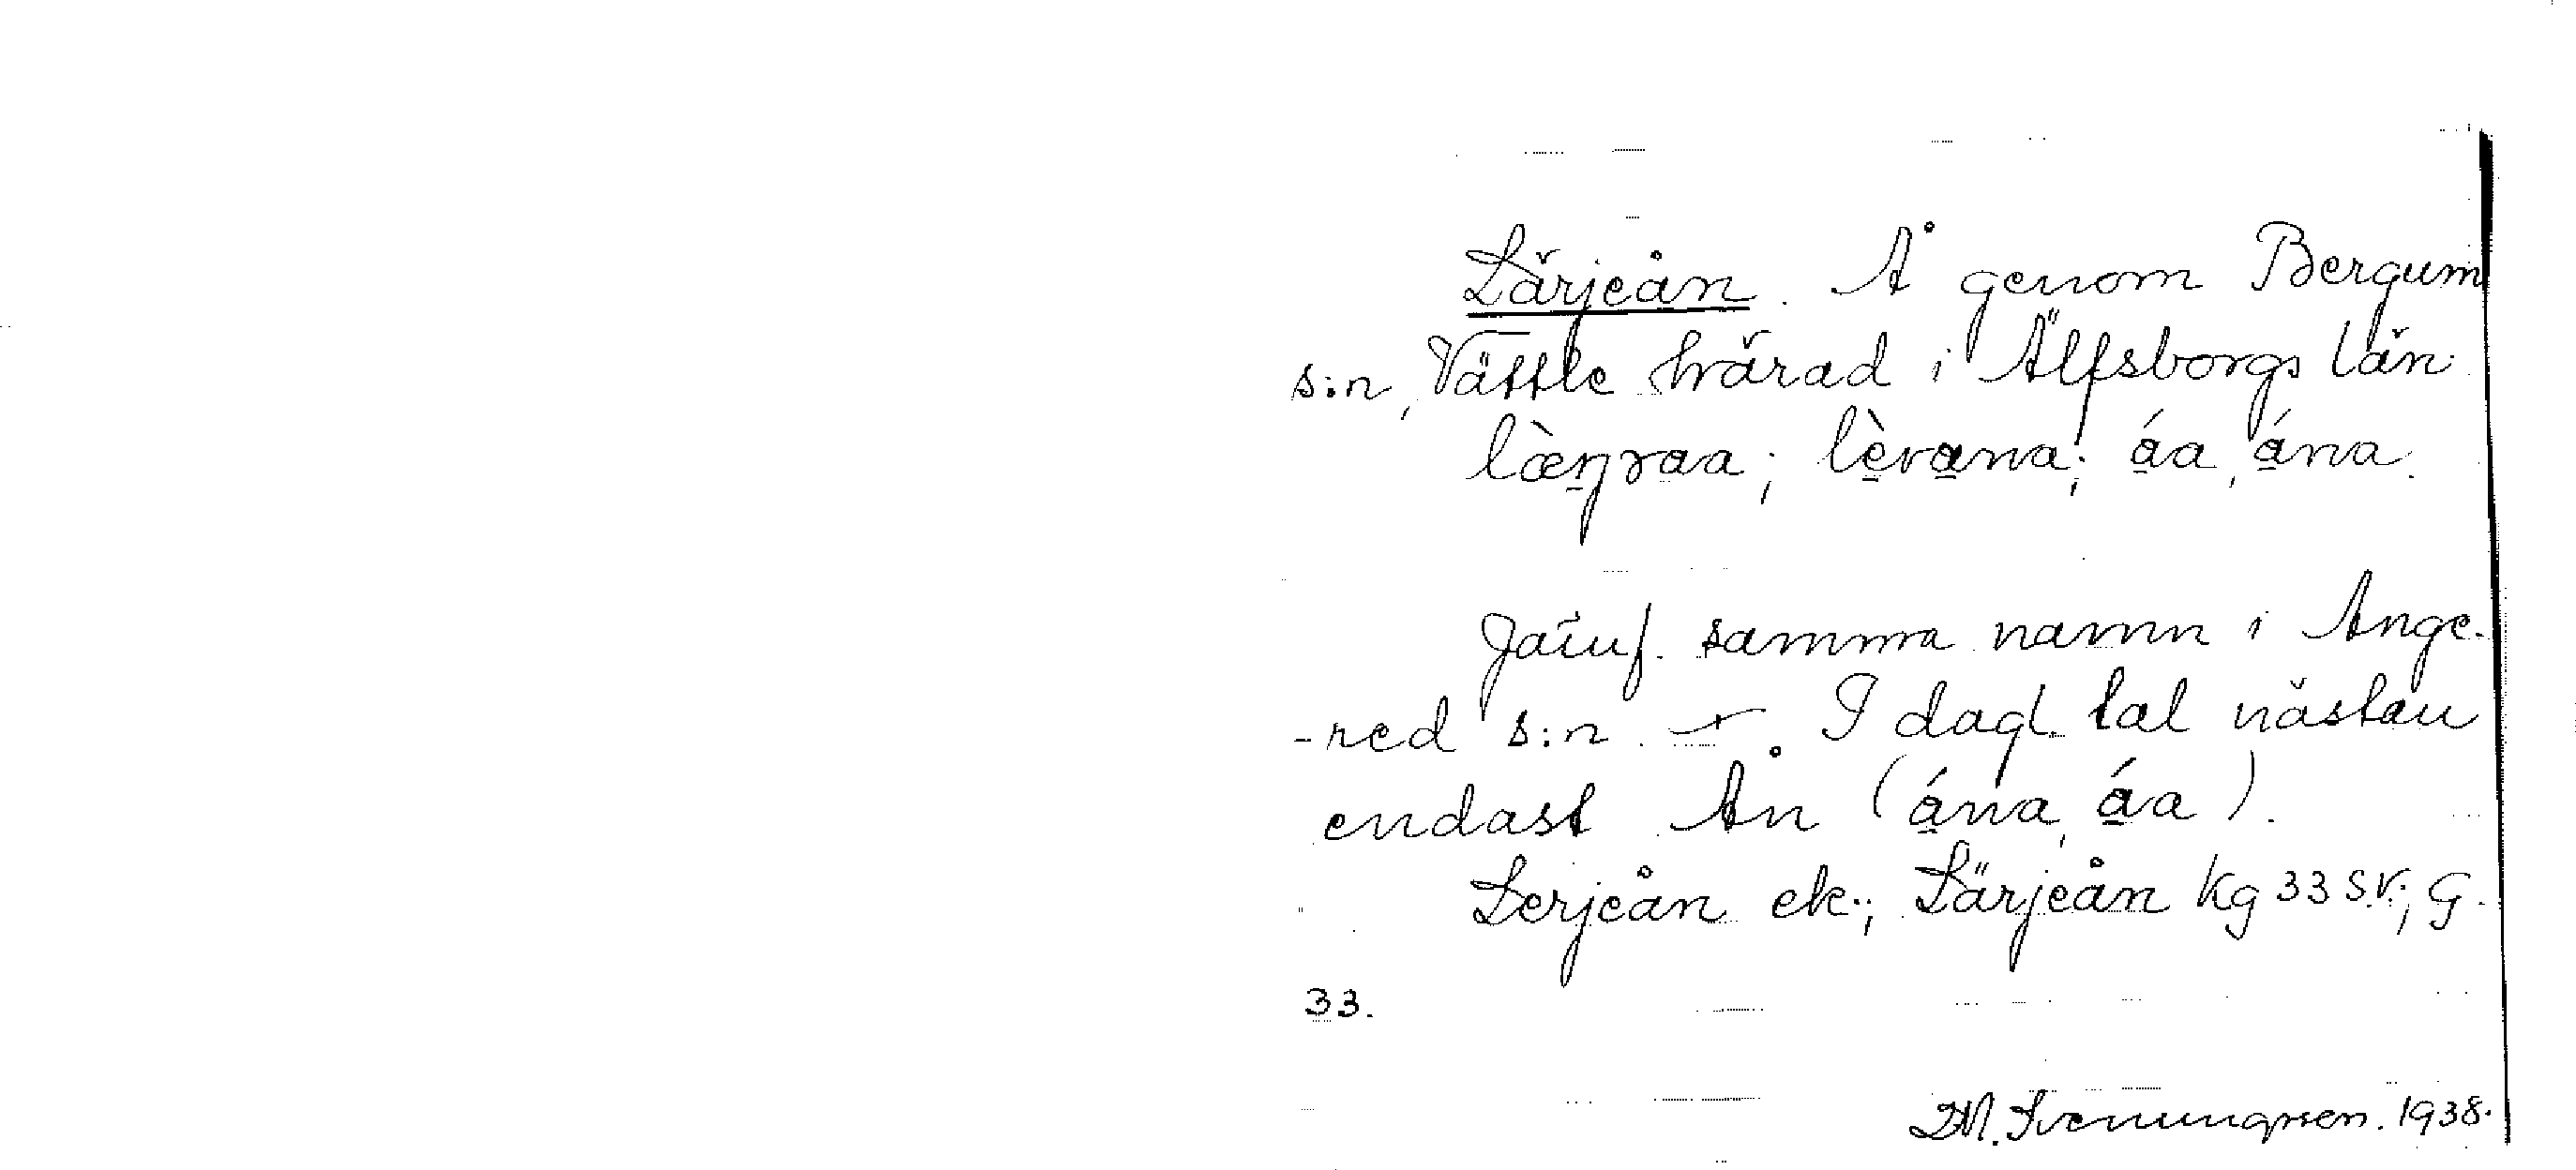 Lärjeån. Å genom Bergum
s:n, Vättle härad i Älfsborgs län.
lèvana; áa, ána.
Jämf. samma namn i Ange-
-red s:n. I dagl. tal nästan
endast Ån (ána, áa).
Lerjeån ek.; Lärjeån Kg 33 S.V.; G.
33.
1938.